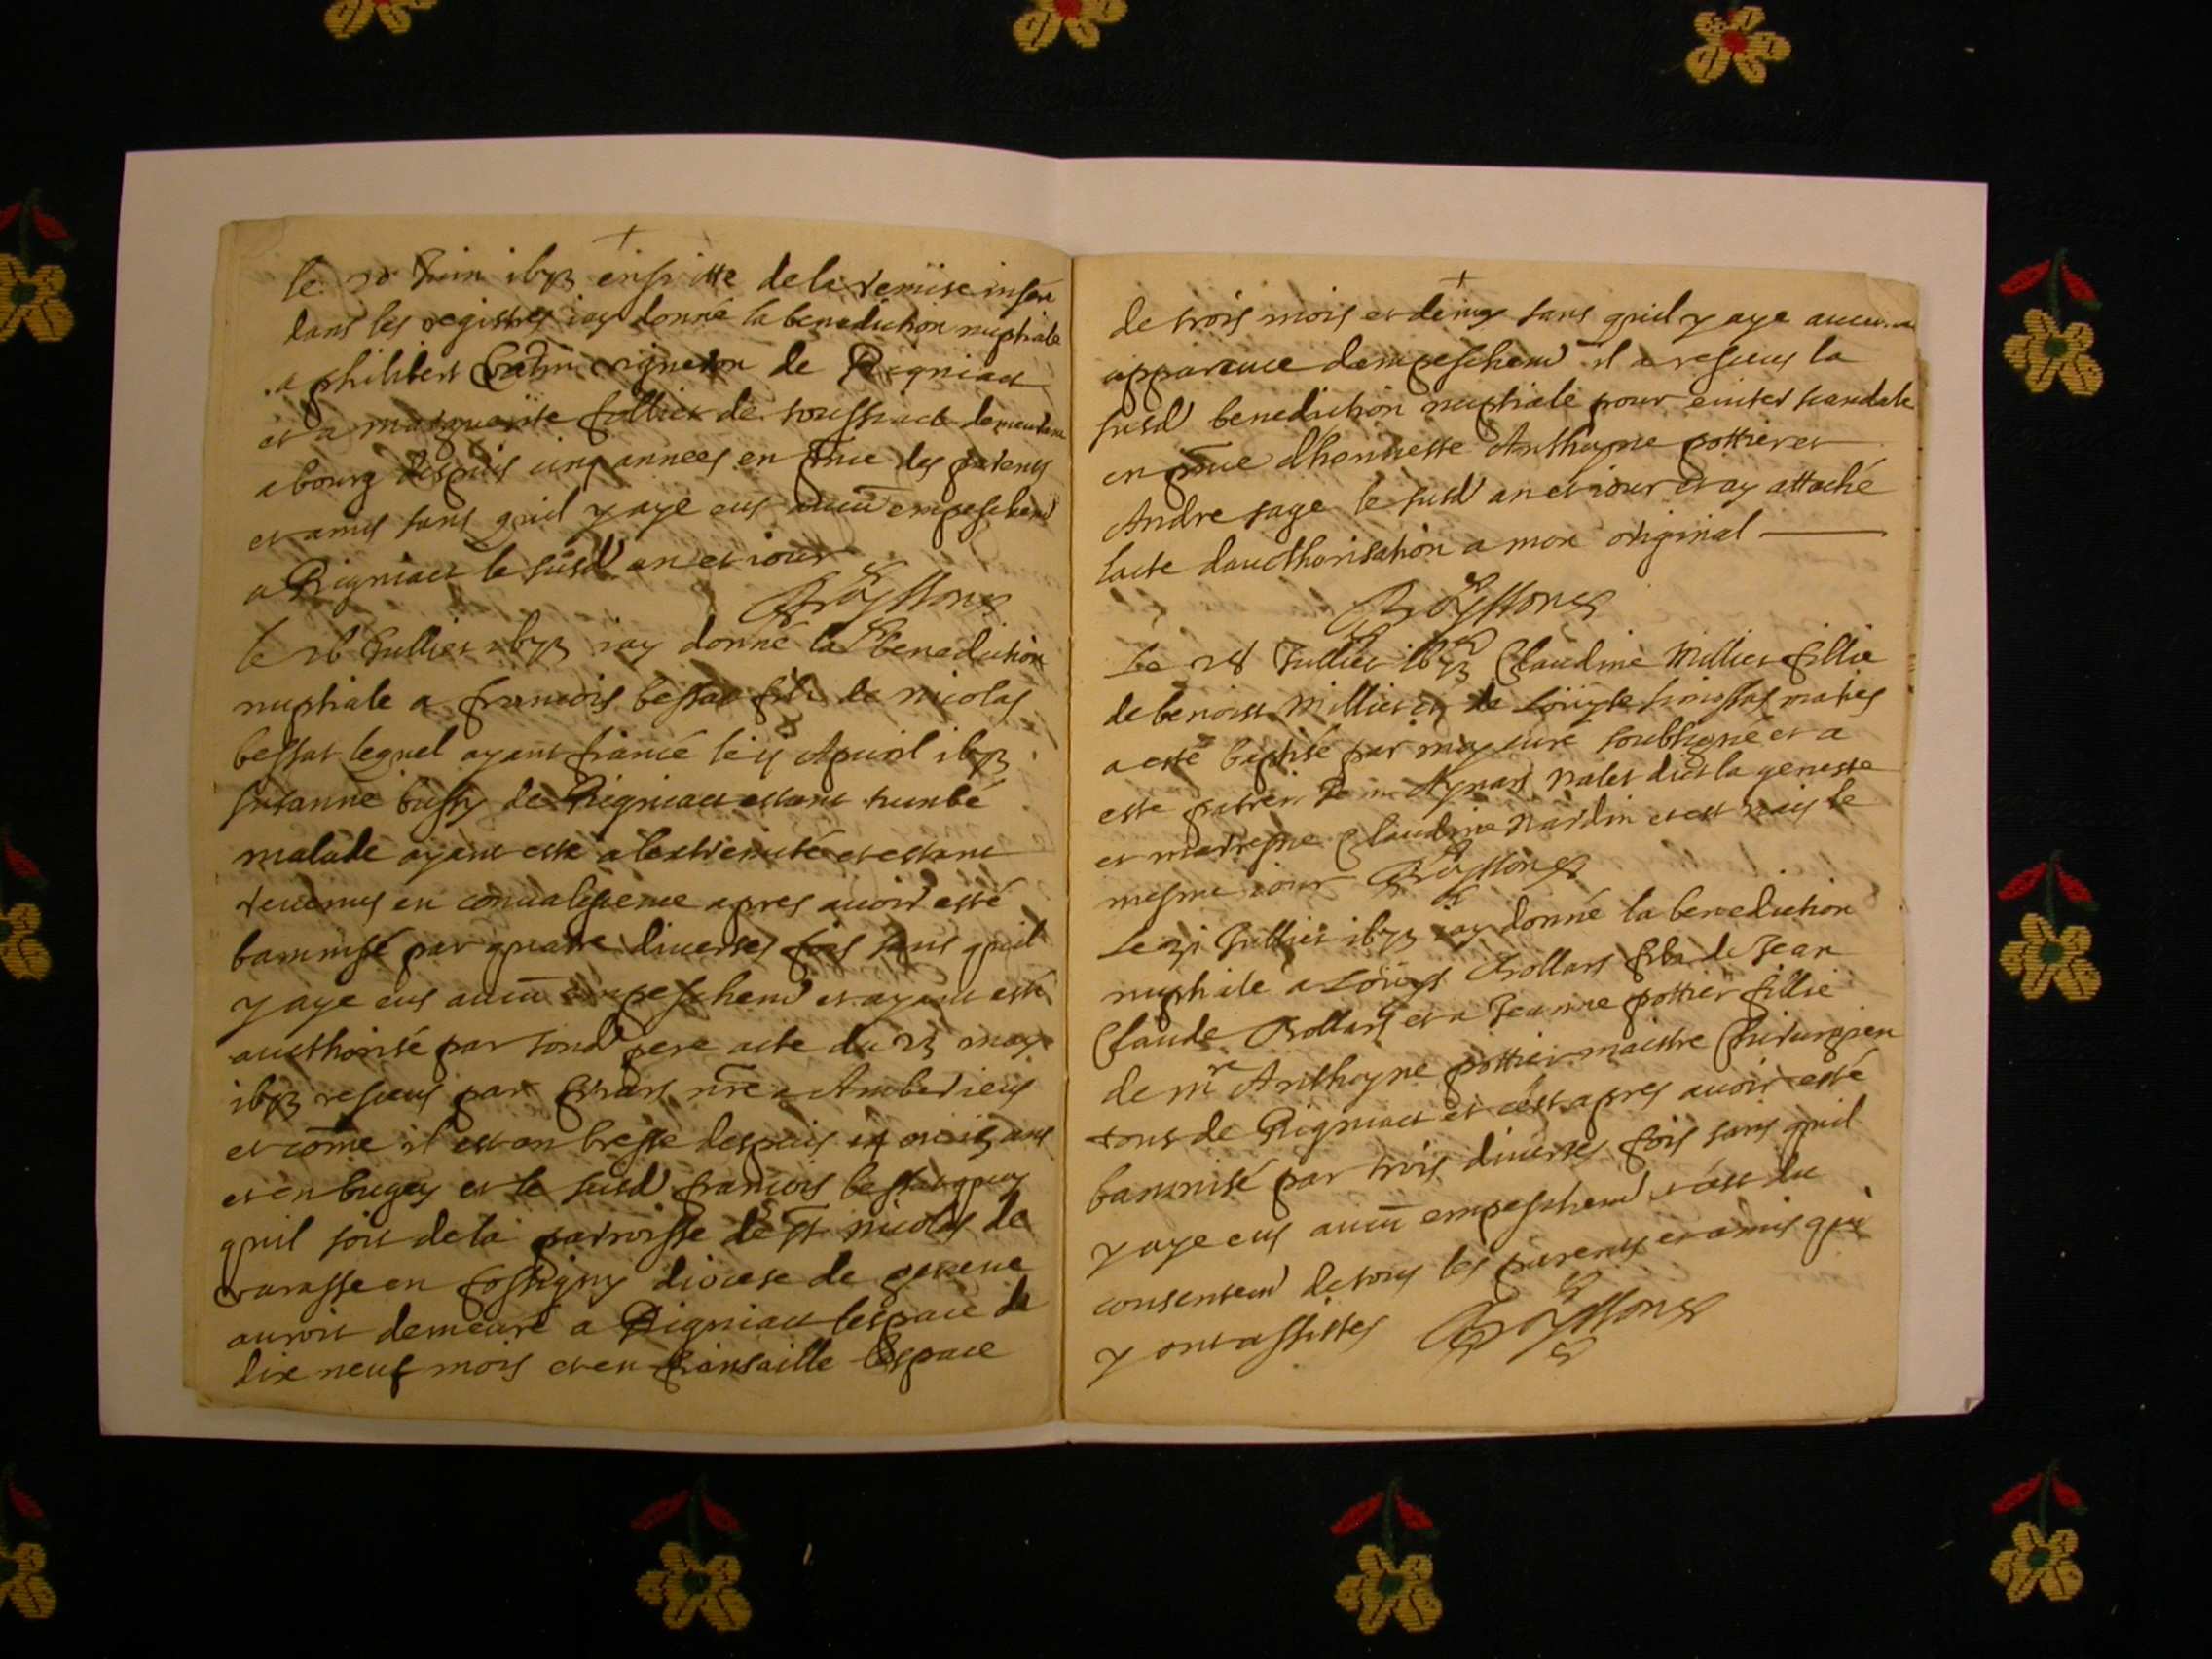 le juin 1673 en suitte de la remise inseré
dans les registres iay donné la benediction nuptiale
a philibert vigneron de Rigniact
et a marguerite follies de soussiact demeurant
a bourg despuis cinq annees en pnce des parents
et amis sans quil y aye eus aucū empeschemt
a Rigniact le susd an et iour
Broyssons
le 16 Jullies 1673 iay donné la benediction
nuptiale a francois bessat fils de nicolas
bessat lequel ayant fiancé le 11 Apuril 1673
susanne bussy de Rigniact estant tumbé
malade ayant esté a lextremité et estant
reuenus en conualescence apres auoir esté
bannisé par quatre diuerses fois sans quil
y aye eus aucū empeschemt et ayant esté
aucthorisé par sond pere acte du 23 may
1673 receus par nre a Amberieus
et cōme il est en bresse despuis ans
et en bugey et le susd francois bessat quoy
quil soit de la parroisse de st nicolas de
en fossigny diocese de geneue
auroit demeuré a Rigniact lespace de
dix neuf mois et en fiansaille lespace
de trois mois et demy sans quil y aye aucune
apparence dempeschemt il a receus la
susd benediction nuptiale pour euiter scandale
en pnce dhonneste Anthoyne pottier et
Andre sage le susd an et iour et ay attaché
lacte daucthorisation a mon original
Broyssons
Le 28 Jullies 1673 Claudine Millies fillie
de benoist Millies et de Löuyse maries
a esté baptisé par moy curé soubsigné et a
esté parrein Aymars nales dict la genesse
et marreyne Claudine nardin et est nay le
mesme iour Broyssons
Le 31 Jullies 1673 iay donné la benediction
nuptiale a Löuys Brollars fils de Jean
Claude Brollars et a Jeanne pottier fillie
de mre Anthoyne pottier maistre Chirurgien
tous de Rigniact et cest apres auoir esté
bannisé par trois diuerses fois sans quil
y aye eus aucū empeschemt et cest du
consentemt de tous les parents et amis qui
y ont assistes Broyssons